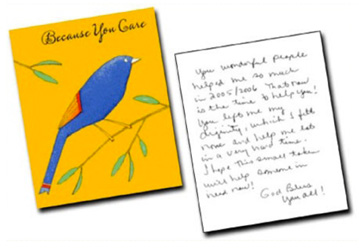 Because You Care
You wonderful people
helped me so much
in 2005/2006 that now
is the time to help you!
You left me my
dignity, which I felt
none and help me lots
in a very hard time.
I hope this small token
will help someone in
need now!
God Bless
You all!